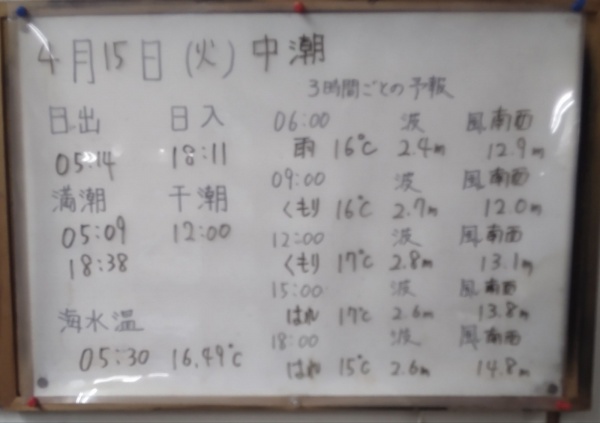 4月15日(火)中潮
3時間ごとの予報
日出 日入
05:14 18:11
満潮 干潮
05:09 12:00
18:38
海水温
05:30 16.49℃
06:00 波 風南西
雨 16℃ 2.4m 12.9m
09:00 波 風南西
くもり 16℃ 2.7m 12.0m
12:00 波 風南西
くもり 17℃ 2.8m 13.1m
15:00 波 風南西
はれ 17℃ 2.6m 13.8m
18:00 波 風南西
はれ 15℃ 2.6m 14.8m